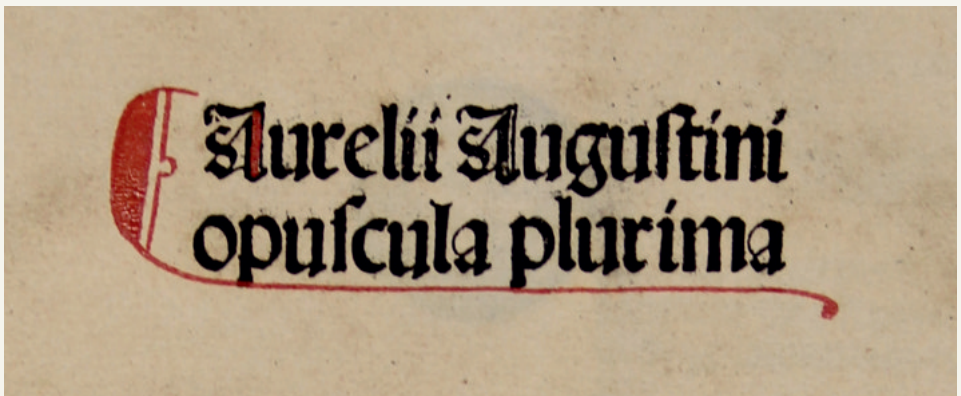 Aurelii Auguſtini
opuſcula plurima